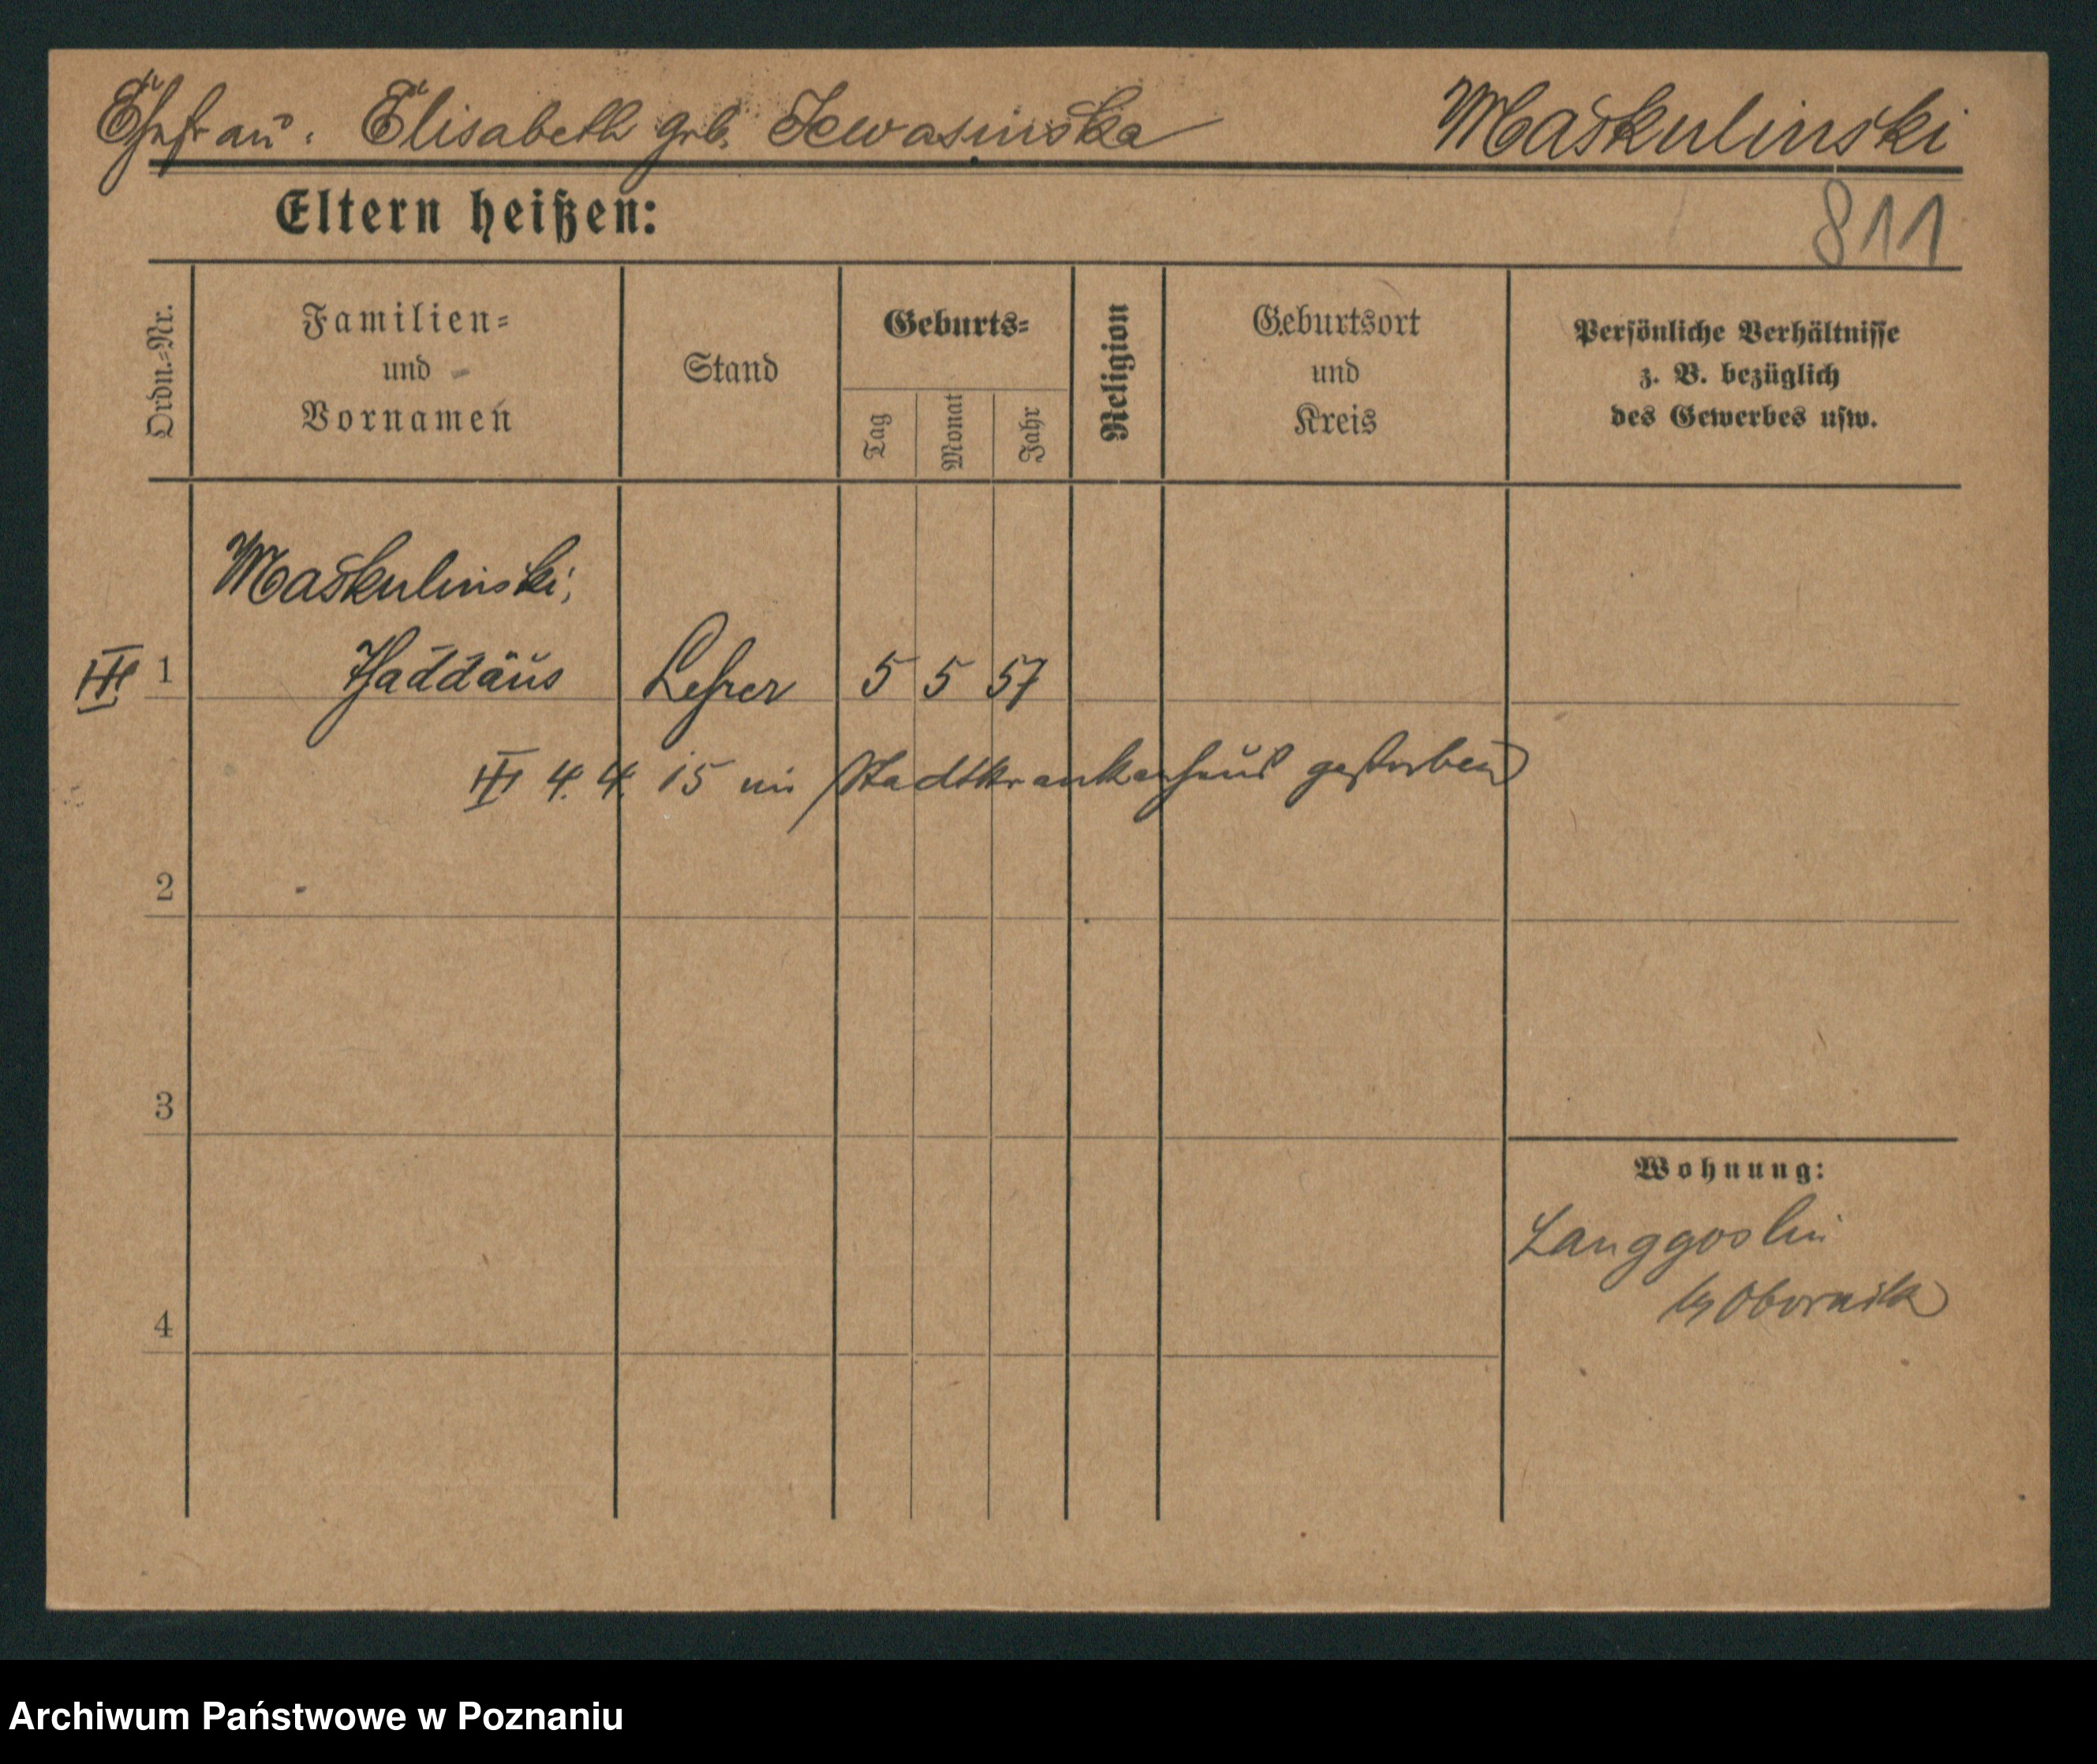 Ehefrau: Elisabeth geb. Maskulinski
Eltern heißen:
811
Ordn.-Nr.
Familien-
und
Vornamen
Stand
Geburts-
Tag
Monat
Jahr
Religion
Geburtsort
und
Kreis
Persönliche Verhältnisse
z. B. bezüglich
des Gewerbes usw.
Maskulinski,
III 1 Thaddäus Lehrer 5 5 57
III 4. 4. 15 im Stadtkrankenhaus gestorben
2
3
Wohnung:
Langgoslin
Obornik
4
Archiwum Państwowe w Poznaniu